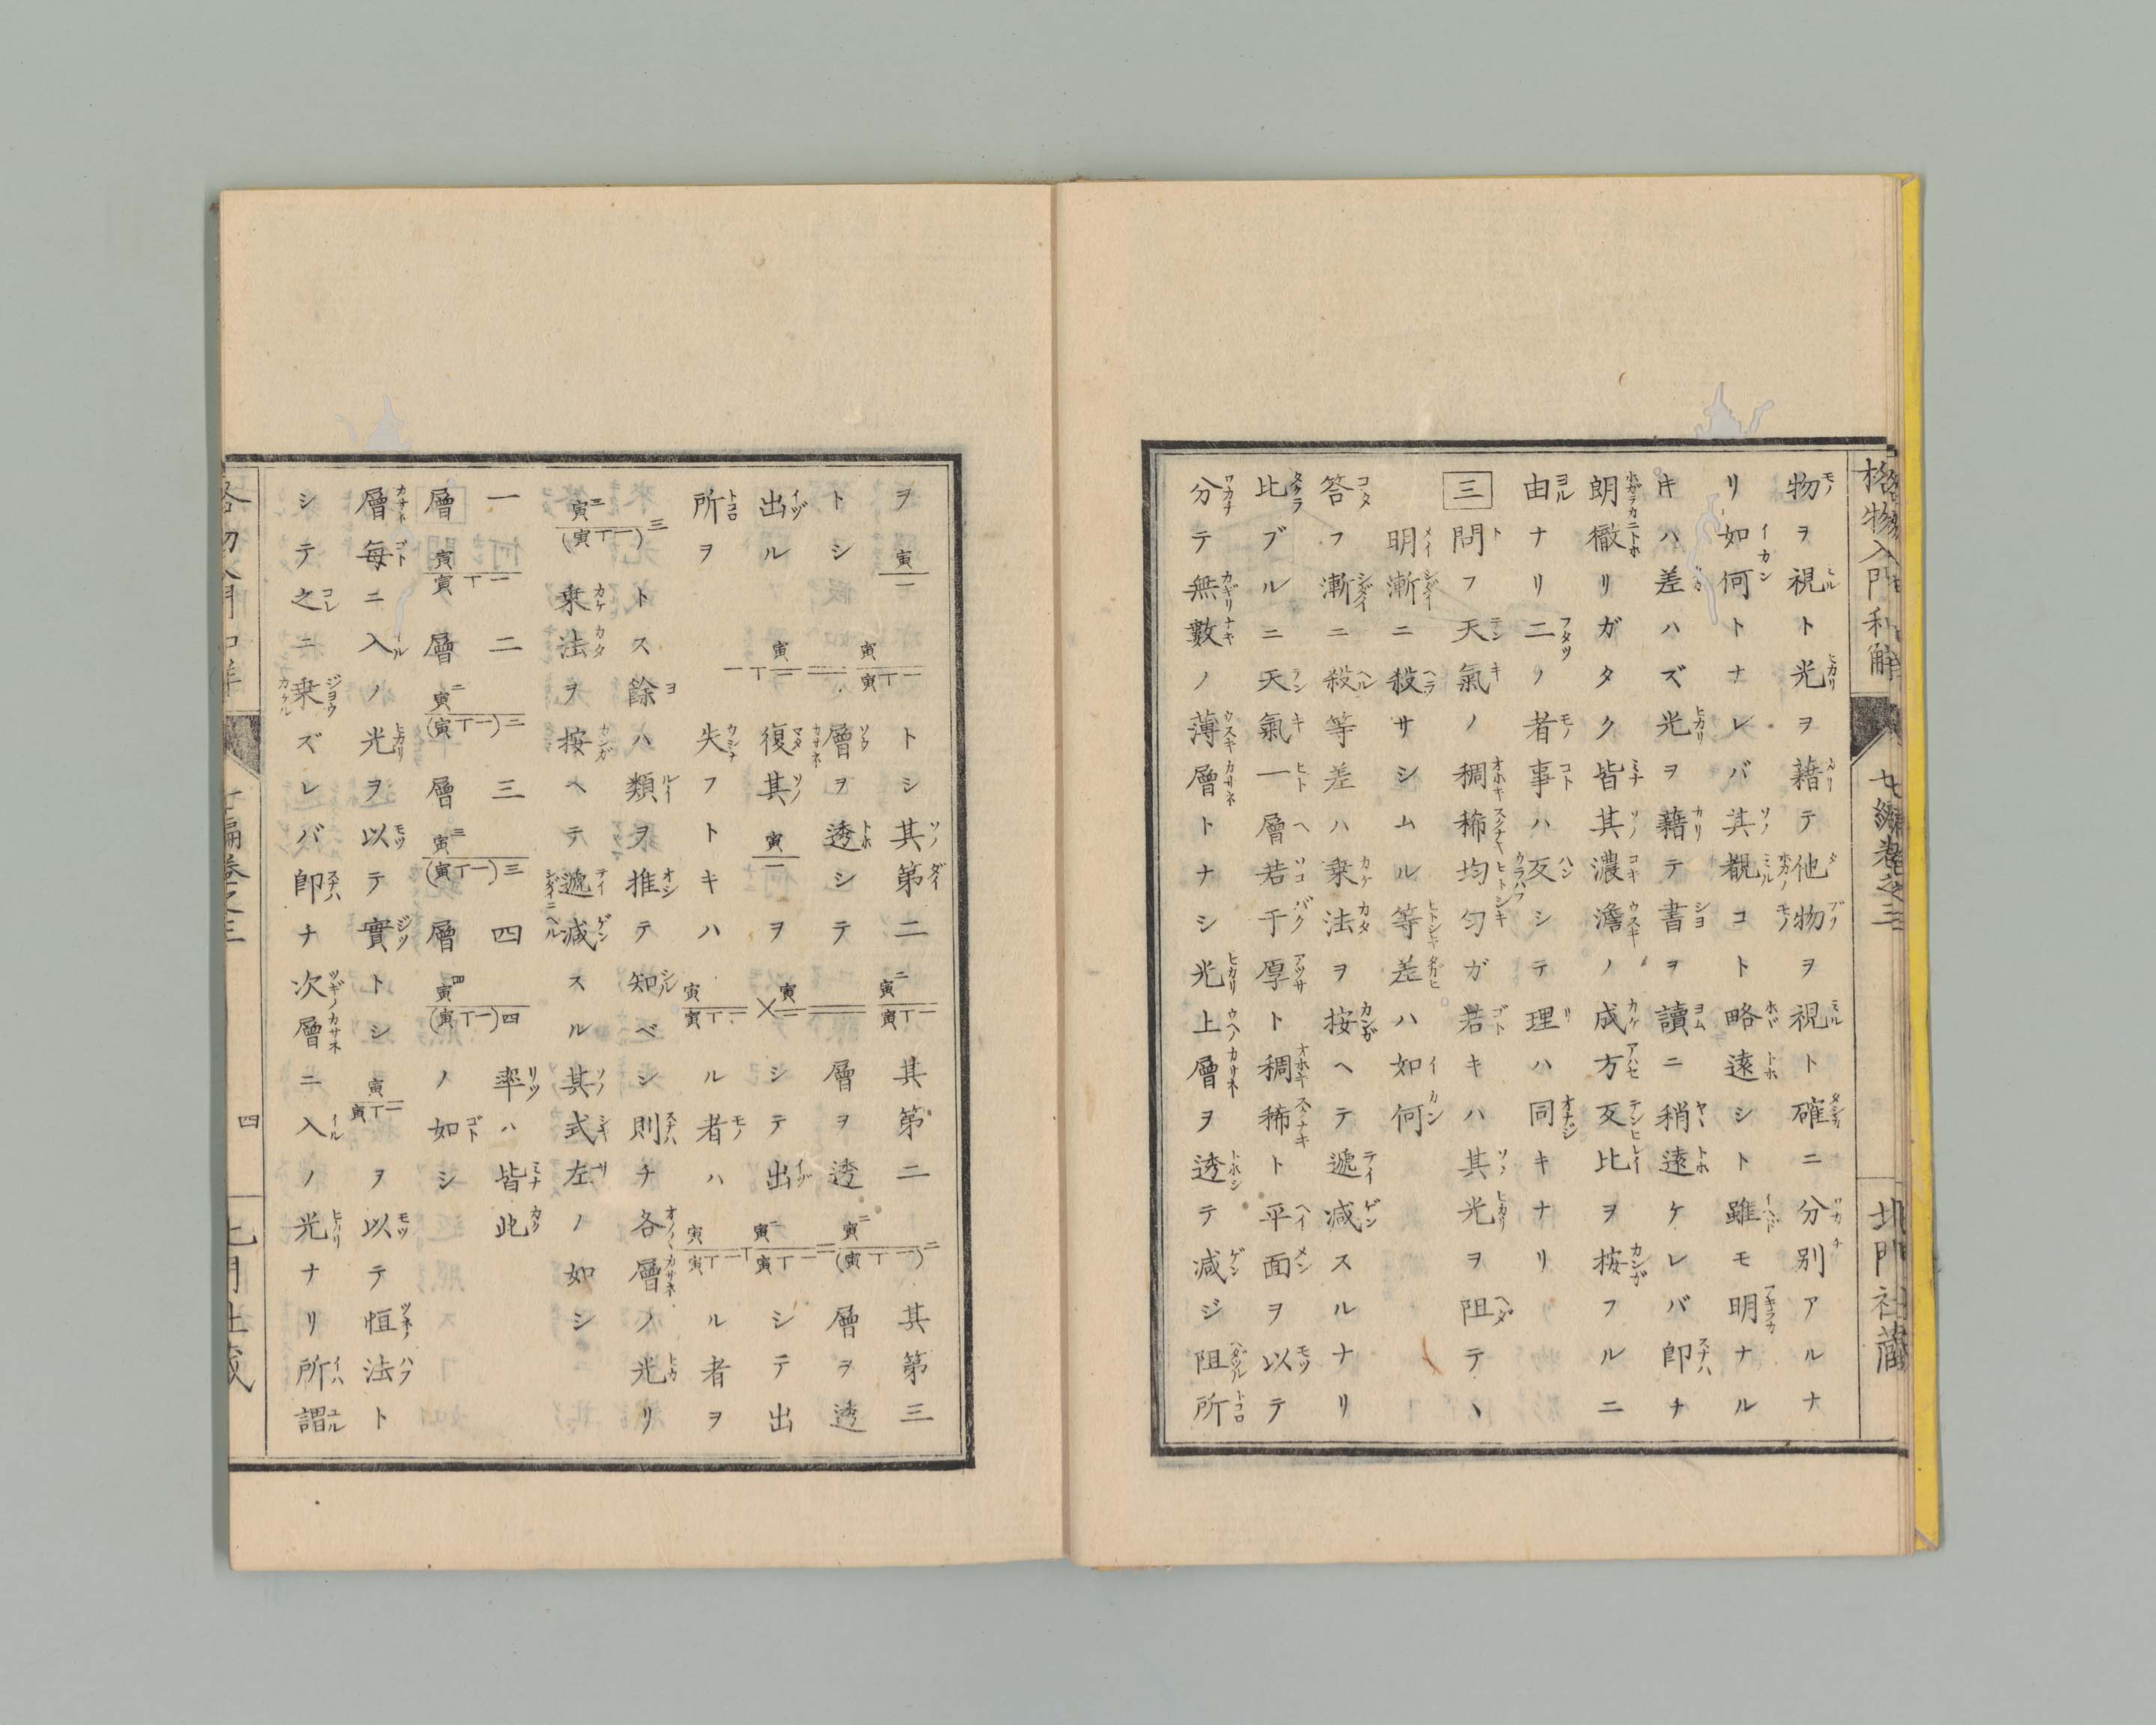 格物入門和解 七編卷之三 北門社藏
物ヲ視ト光ヲ藉テ他物ヲ視ト確ニ分別アルナ
リ如何トナレバ其覩コト略遠シト雖モ明ナル
キハ差ハズ光ヲ藉テ書ヲ讀ニ稍遠ケレバ即ナ
朗徹リガタク皆其濃澹ノ成方反比ヲ按フルニ
由ナリ二ノ者事ハ反シテ理ハ同キナリ
三 問フ天氣ノ稠稀均匀ガ若キハ其光ヲ阻テヽ
明漸ニ殺サシムル等差ハ如何
答フ漸ニ殺等差ハ乗法ヲ按ヘテ遞减スルナリ
比ブルニ天氣一層若干厚ト稠稀ト平面ヲ以テ
分テ無數ノ薄層トナシ光上層ヲ透テ减ジ阻所
ヲ 寅/一 寅/寅丁一 トシ其第二 寅二/寅丁一 其第二 其第三
トシ 層ヲ透シテ 層ヲ透 寅二/(寅丁一)二 層ヲ透
出ル 寅/一丁 復其 寅/一 ヲ 寅 シテ出 寅二/寅丁一 シテ出
所ヲ 失フトキハ 寅/寅丁一 ル者ハ 寅/寅丁一 ル者ヲ
トス餘ハ類ヲ推テ知ベシ則チ各層ノ光リ
寅三/(寅丁一)三 乗法ヲ按ヘテ遞减スル其式左ノ如シ
一 二 三 四 率ハ皆此
層 寅/寅丁一 層 寅二/(寅丁一)二 層 寅三/(寅丁一)三 層 寅四/(寅丁一)四 ノ如シ
層毎ニ入ノ光ヲ以テ實トシ 寅/寅丁一 ヲ以テ恒法ト
シテ之ニ乗ズレバ即ナ次層ニ入ノ光ナリ所謂
七編卷之三 四 北門社藏